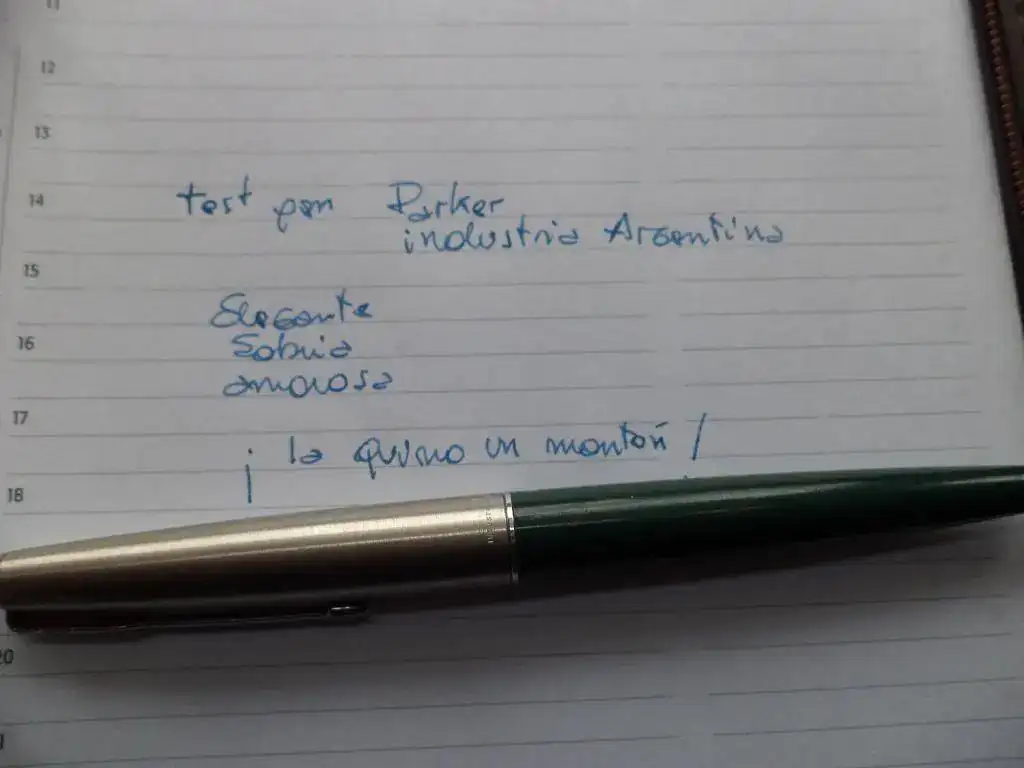 11
12
13
14
test pen Parker
industria Argentina
15
Elegante
16
Sobria
amorosa
17
¡ la quiero un montón !
18
20